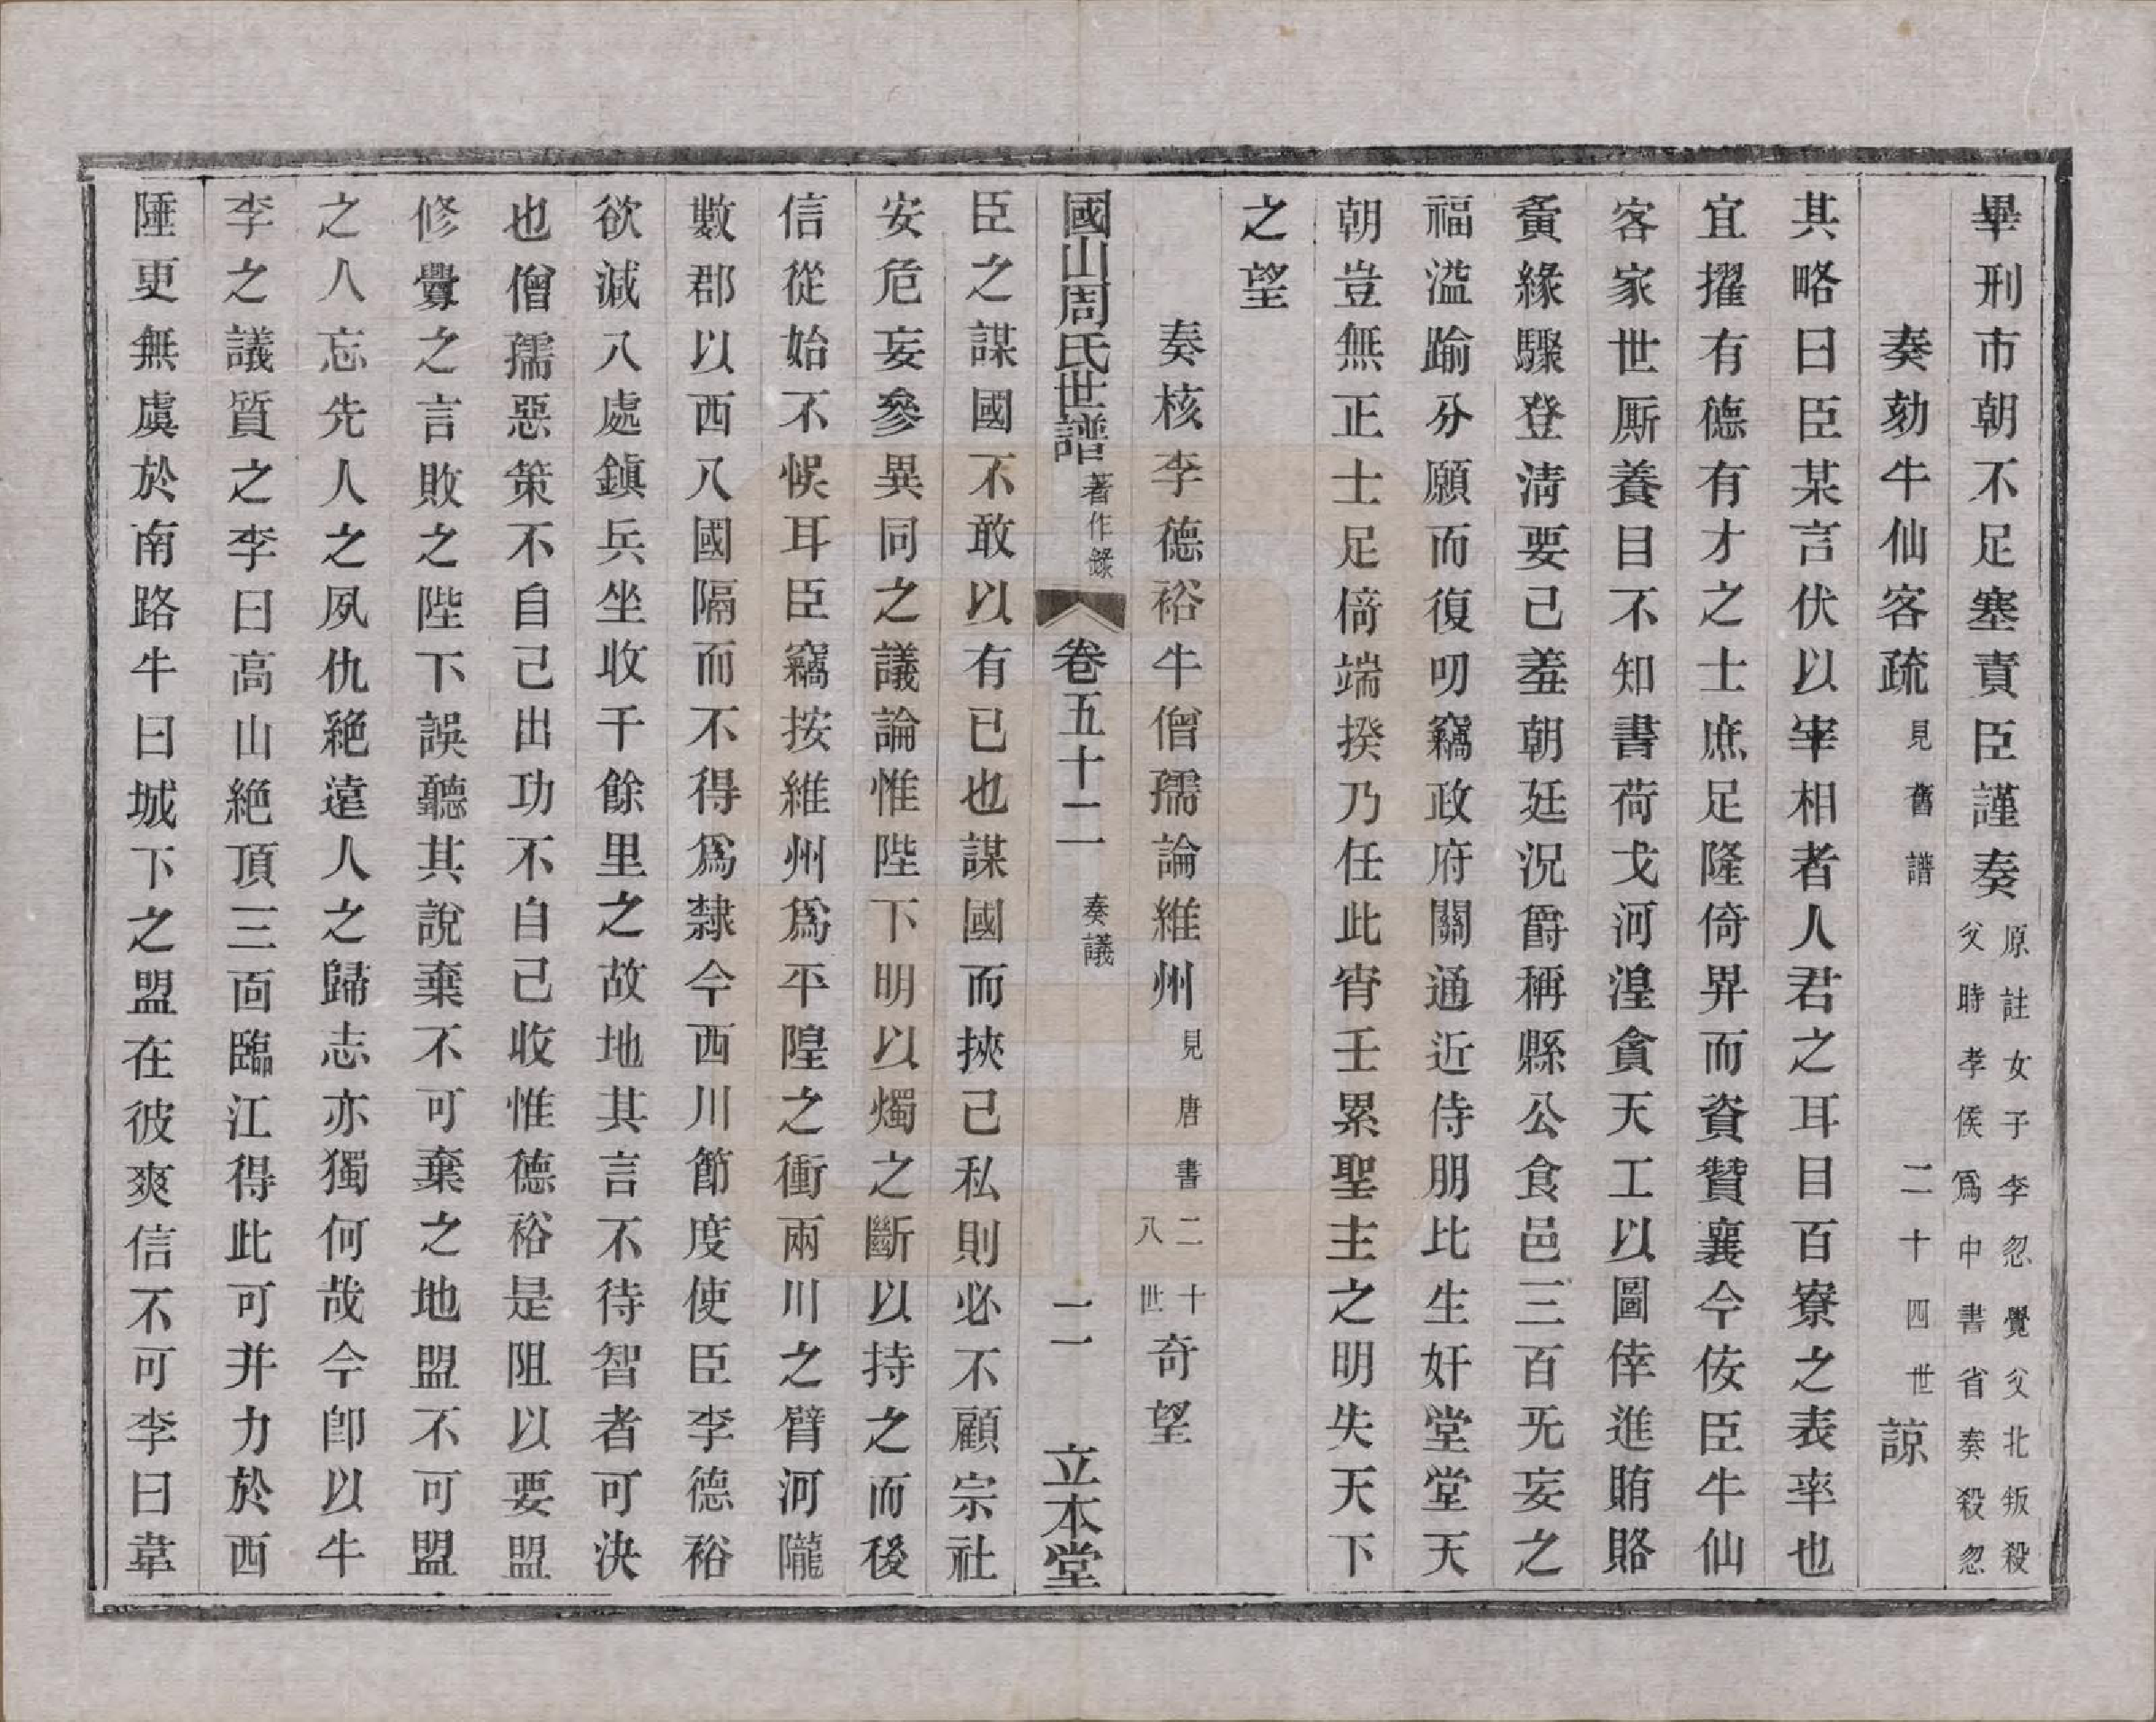 畢刑市朝不足塞責臣謹奏原註女子李忽覺父北叛殺父時孝侯爲中書省奏殺忽
奏劾牛仙客疏見舊譜 二十四世諒
其略曰臣某言伏以宰相者人君之耳目百寮之表率也
宜擢有德有才之士庶足隆倚畀而資贊襄今侫臣牛仙
客家世厮養目不知書荷戈河湟貪天工以圖倖進賄賂
夤緣驟登淸要己羞朝廷況爵稱縣公食邑三百旡妄之
福溢踰分願而復叨竊政府關通近侍朋比生奸堂堂天
朝豈無正士足倚端揆乃任此宵壬累聖主之明失天下
之望
奏核李德裕牛僧孺論維州見唐書二十八世奇望
國山周氏世譜著作錄 卷五十二 奏議 二 立本堂
臣之謀國不敢以有已也謀國而挾己私則必不顧宗社
安危妄參異同之議論惟陛下明以燭之斷以持之而後
信從始不悞耳臣竊按維州爲平隍之衝兩川之臂河隴
數郡以西八國隔而不得爲隸今西川節度使臣李德裕
欲減八處鎭兵坐收千餘里之故地其言不待智者可決
也僧孺惡策不自己出功不自己收惟德裕是阻以要盟
修釁之言敗之陛下誤聽其說棄不可棄之地盟不可盟
之人忘先人之夙仇絶遠人之歸志亦獨何哉今卽以牛
李之議質之李曰高山絶頂三面臨江得此可并力於西
陲更無虞於南路牛曰城下之盟在彼爽信不可李曰韋